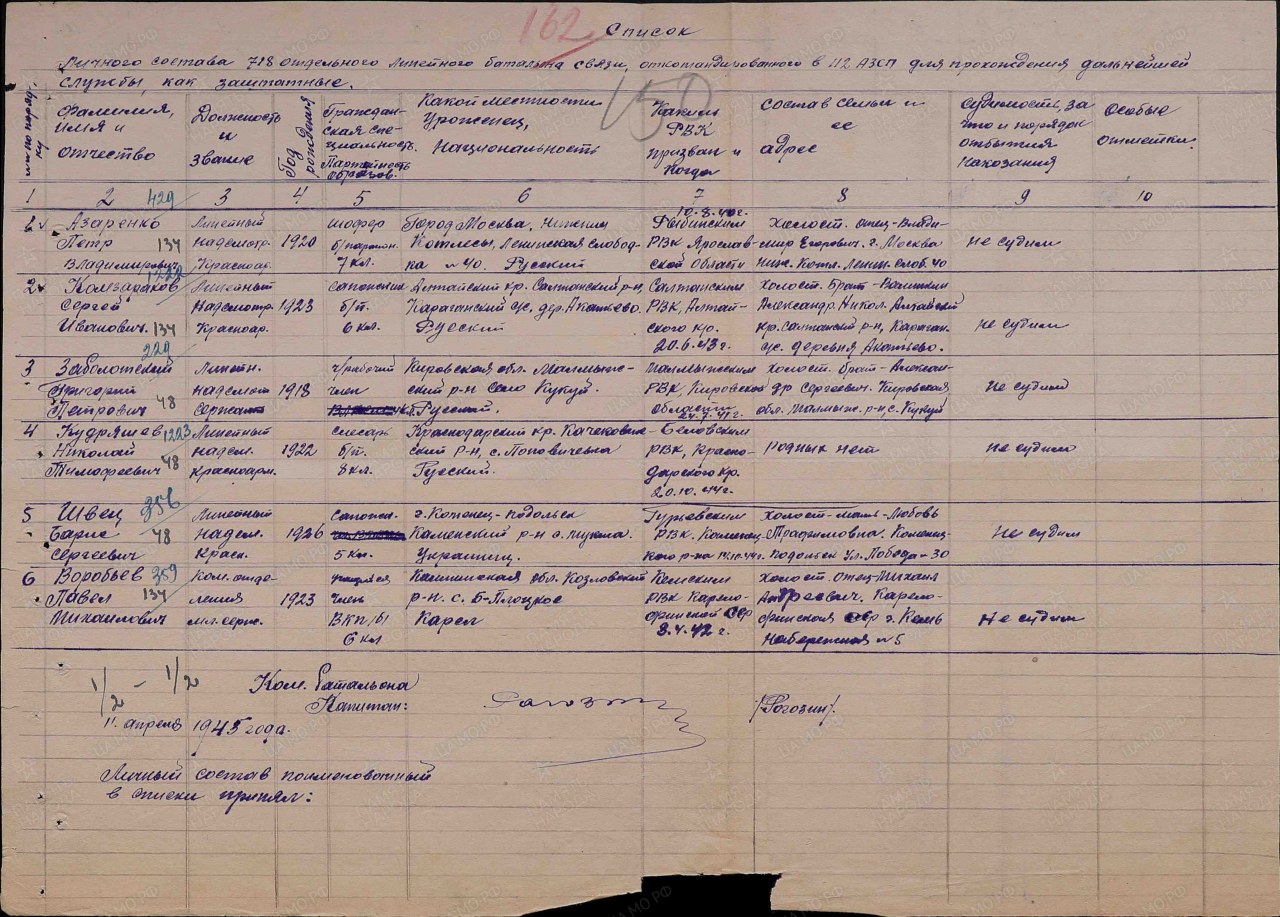 162
Список
Личного состава 718 отдельного линейного батальона связи, откомандированного в 112 АЗСП для прохождения дальнейшей
службы, как заштатные.
150
№№ по порядку
Фамилия, имя и отчество
Должность и звание
Год рождения
Гражданская специальность. Партийность образов.
Какой местности Уроженец, Национальность
Каким РВК призван и когда
состав семьи и ее адрес
судимость, за что и порядок отбытия наказания
Особые отметки.
1 2 3 4 5 6 7 8 9 10
429
1. Азаренко Петр Владимирович
134
Линейный надсмотр. Красноар.
1920
шофер б/партийн. 7 кл.
Город Москва, Нижнии Котлесы, Ленинская слободка №40. Русский
10.8.40г. Рыбинским РВК Ярославской Области
Холост. отец-Владимир Егорович. г. Москва Ниж. Котл. Ленин. слоб. 40
не судим
1222
2 Сергей Иванович.
134
Линейный Надсмотр. Красноар.
1923
сапожник б/п. 6 кл.
Алтайский кр. Салтанский р-н, с/с. дер. Акатьево. Русский
Салтанским РВК, Алтайского кр. 20.6.43г.
Холост. Брат- Александр. Никол. Алтайский кр. Салтанский р-н, с/с. деревня Акатьево.
не судим
229
3 Заболотский Григорий Петрович
48
Линейн. надсмотр сержант
1918
ч/рабочий член
Кировская обл. Малмыжский р-н Село Кукуй. Русский.
Малмыжским РВК, Кировской области 24.7.41г.
холост. брат-Александр Сергеевич. Кировская обл. Малмыж. р-н с. Кукуй
Не судим
1223
4 Кудряшев Николай Тимофеевич
48
Линейный надсм. красноарм.
1922
слесарь б/п. 8 кл.
Краснодарский кр. р-н, с. Поповичевка Русский.
Беловским РВК, Краснодарского кр. 20.10.44г.
Родных нет
Не судим
356
5 Швец Борис Сергеевич
48
Линейный надсм. Красн.
1926
Сапожн. 5 кл.
г. Коменец-Подольск Каменский р-н Украинец.
Гурьевским РВК. Каменецкого р-на
Холост-мать-Любовь Каменец-Подольск Ул. Победа-30
Не судим
359
6 Воробьев Павел Михаилович
134
Ком. отделения мл. серж.
1923
учащийся член ВКП/б/ 6 кл
Калининская обл. Козловский р-н. с. Б-Плоцкое Карел
Кемским РВК Карело-Финской ССР 8.4.42 г.
холост. отец-Михаил Андреевич. Карело-финская сср г. Кемь Набережная №5
Не судим
1/2 – 1/2
2
Ком. батальона
Капитан:
/Рогозин/.
11. апреля 1945 года.
Личный состав поименованный
в списки принял:
ЦАМО.РФ